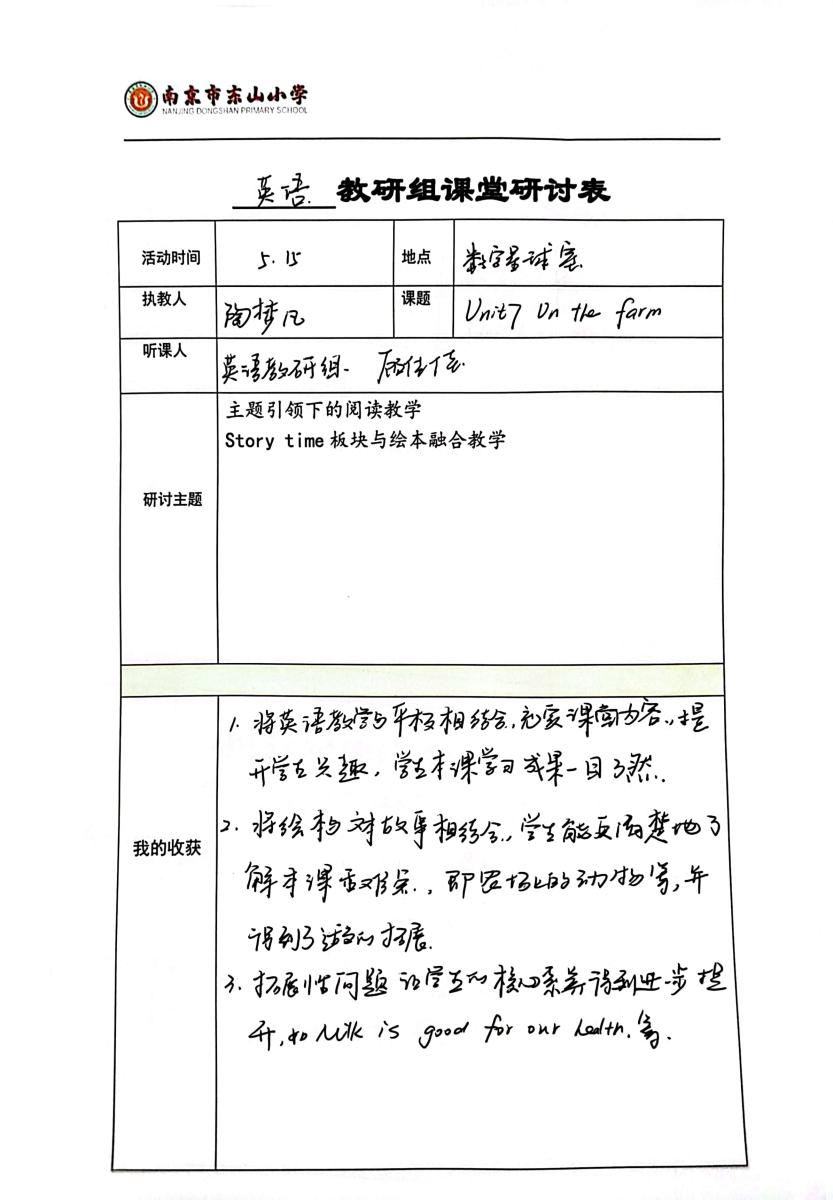 南京市东山小学
NANJING DONGSHAN PRIMARY SCHOOL
英语 教研组课堂研讨表
活动时间 5.15 地点 数字星球室
执教人 陶梦凡 课题 Unit7 On the farm
听课人 英语教研组
研讨主题
主题引领下的阅读教学
Story time 板块与绘本融合教学
我的收获
1. 将英语教学与平板相结合,充实课堂内容,提
升学生兴趣,学生本课学习成果一目了然.
2. 将绘本与故事相结合,学生能更清楚地了
解本课重难点,即农场上的动物等,并
得到了适当的拓展.
3. 拓展性问题让学生的核心素养得到进一步提
升,如Milk is good for our health.等.